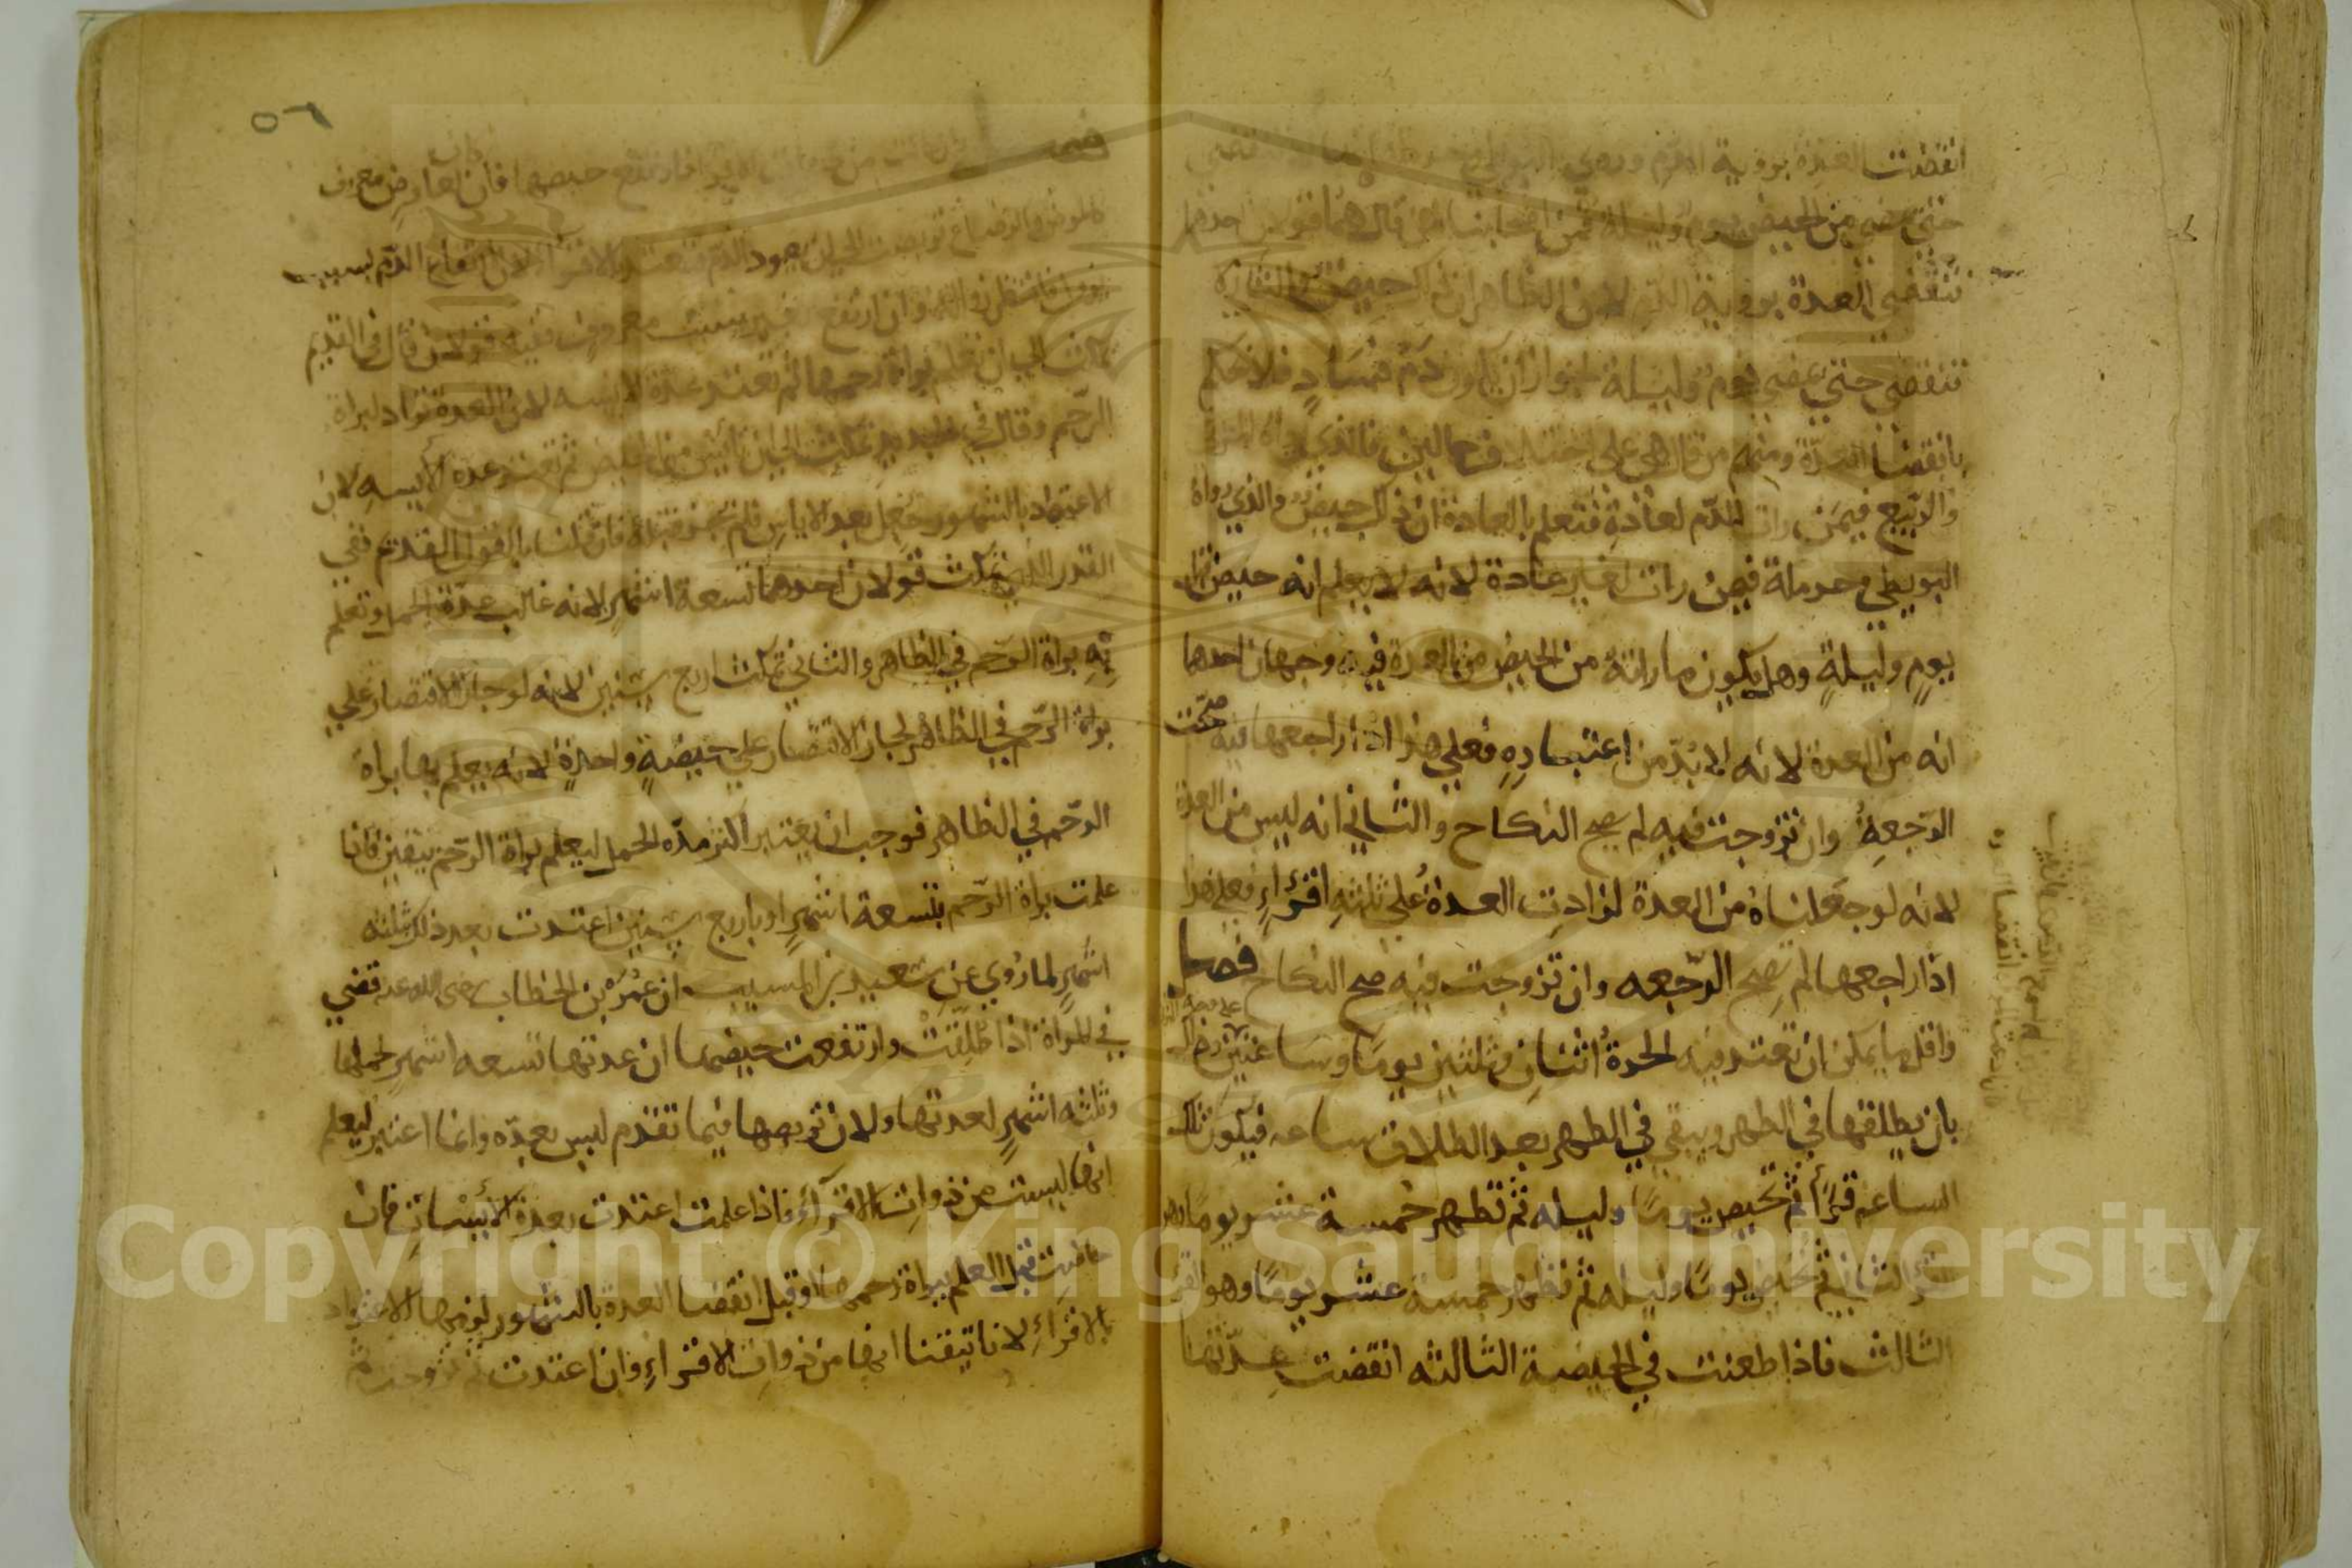 انقضت العدة بروية الدم وروى البويطي
حتى يمضي من الحيض يوم وليلة فمن اصحابنا من قال هما قولان احدهما
تنقضي العدة بروية الدم لان الظاهر ان ذلك حيض والثاني لا
تنقضي حتى يمضي يوم وليلة لجواز ان يكون دم فساد فلا نحكم
بانقضا العدة ومنهم من قال هي على اختلاف حالين فالذي رواه المزني
والربيع فيمن رات الدم لعادة فتعلم بالعادة ان ذلك حيض والذي رواه
البويطي وحرملة فيمن رات لغير عادة لانه لا يعلم انه حيض قبل
يوم وليلة وهل يكون ما راته من الحيض من العدة فيه وجهان احدهما
انه من العدة لانه لا بد من اعتباره فعلى هذا اذا راجعها فيه صحت
الرجعة وان تزوجت فيه لم يصح النكاح والثاني انه ليس من العدة
لانه لو جعلناه من العدة لزادت العدة على ثلثة اقراء فعلى هذا
اذا راجعها لم تصح الرجعه وان تزوجت فيه صح النكاح فصل
واقل ما يمكن ان تعتد فيه الحرة اثنان وثلثين يوما وساعتين وذلك
بان يطلقها في الطهر ويبقى في الطهر بعد الطلاق ساعه فيكون تلك
الساعه قرأ ثم تحيض يوما وليله ثم تطهر خمسة عشر يوما وهو
القرء الثاني ثم تحيض يوما وليله ثم تطهر خمسة عشر يوما وهو القرء
الثالث فاذا طعنت في الحيضة الثالثه انقضت عدتها
٥٦
فصل وان كانت من ذوات الاقرا فارتفع حيضها فان كان لعارض معروف
كالمرض والرضاع تربصت الى ان يعود الدم فتعتد بالاقرا لان ارتفاع الدم بسبب
يزول فانتظر زواله وان ارتفع بغير سبب معروف ففيه قولان قال في القديم
تمكث الى ان تعلم براة رحمها ثم تعتد عدة الايسه لان العدة تراد لبراة
الرحم وقال في الجديد تمكث الى ان تايس من الحيض ثم تعتد عدة الايسه لان
الاعتداد بالشهور جعل بعد الاياس فلم يجز قبله فان قلنا بالقول القديم ففي
القدر الذي تمكث قولان احدهما تسعة اشهر لانه غالب عدة الحمل وتعلم
به براة الرحم في الظاهر والثاني تمكث اربع سنين لانه لو جاز الاقتصار على
براة الرحم في الظاهر لجاز الاقتصار على حيضة واحدة لانه يعلم بها براة
الرحم في الظاهر فوجب ان يعتبر اكثر مدة الحمل ليعلم براة الرحم بيقين فاذا
علمت براة الرحم بتسعة اشهر او باربع سنين اعتدت بعد ذلك ثلثه
اشهر لما روي عن سعيد بن المسيب ان عمر بن الخطاب رضي الله عنه قضى
في المراة اذا طلقت وارتفعت حيضها ان عدتها تسعه اشهر لحملها
وثلثه اشهر لعدتها ولان تربصها فيما تقدم ليس بعده وانما اعتبر ليعلم
انها ليست من ذوات الاقراء فاذا علمت اعتدت بعدة الايسات فان
حاضت قبل العلم ببراة رحمها او قبل انقضا العدة بالشهور لزمها الاعتداد
بالاقراء لانا تيقنا انها من ذوات الاقراء وان اعتدت ثم تزوجت ثم
Copyright © King Saud University